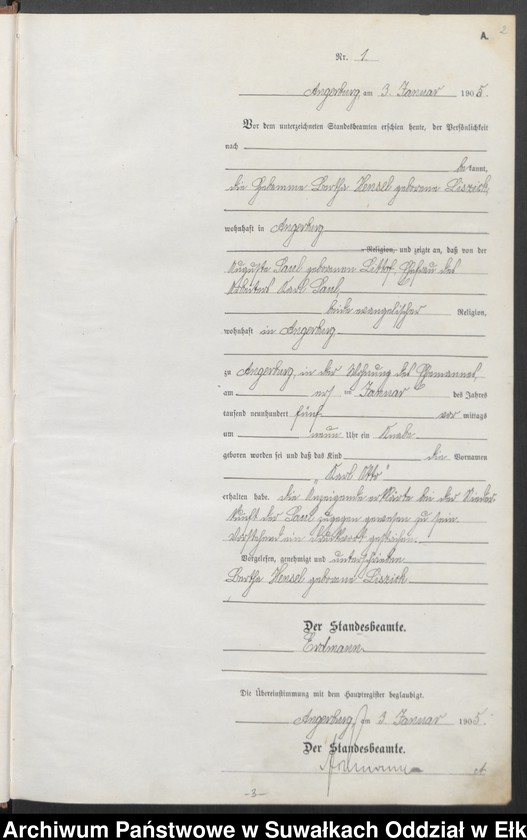 A.
2
Nr. 1.
Angerburg, am 3. Januar 1905.
Vor dem unterzeichneten Standesbeamten erschien heute, der Persönlichkeit
nach
bekannt,
die Hebamme Bertha Hensel geborene Liszick,
wohnhaft in Angerburg
Religion, und zeigte an, daß von der
Auguste Paul geborenen Ehefrau des
Arbeiters Karl Paul,
beide evangelischer Religion,
wohnhaft in Angerburg
zu Angerburg, in der Wohnung des Ehemannes,
am ersten Januar des Jahres
tausend neunhundert fünf vor mittags
um neun Uhr ein Knabe
geboren worden sei und daß das Kind die Vornamen
„Karl Otto“
erhalten habe. Die Anzeigende erklärte bei der Nieder-
kunft der Paul zugegen gewesen zu sein.
Vorstehend ein Druckwort gestrichen.
Vorgelesen, genehmigt und unterschrieben
Bertha Hensel geborene Liszick
Der Standesbeamte.
Erdmann
Die Übereinstimmung mit dem Hauptregister beglaubigt.
Angerburg, am 3. Januar 1905.
Der Standesbeamte.
Erdmann
-3-
Archiwum Państwowe w Suwałkach Oddział w Ełk